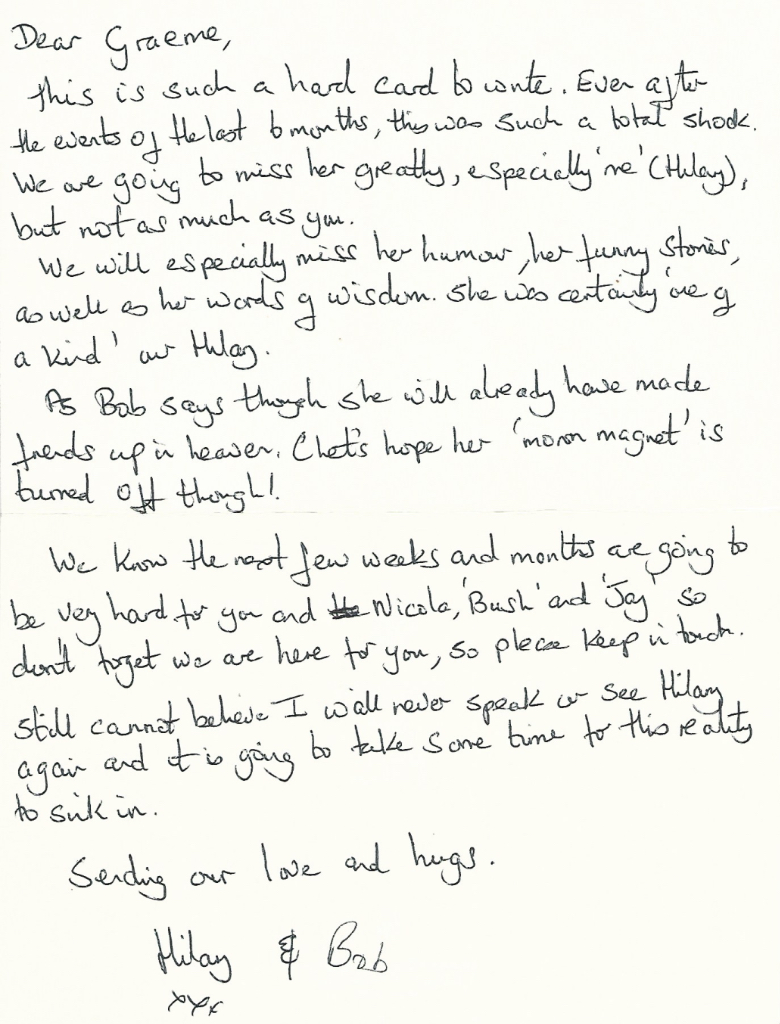 Dear Graeme,
This is such a hard card to write. Even after
the events of the last 6 months, this was such a total shock.
We are going to miss her greatly, especially 'me' (Hilary),
but not as much as you.
We will especially miss her humour, her funny stories,
as well as her words of wisdom. She was certainly 'one of
a kind' our Hilary.
As Bob says though she will already have made
friends up in heaven. (Let's hope her 'moron magnet' is
turned off though!.
We know the next few weeks and months are going to
be very hard for you and Nicola, 'Bush' and 'Jay' so
don't forget we are here for you, so please keep in touch.
Still cannot believe I will never speak or see Hilary
again and it is going to take some time for this reality
to sink in.
Sending our love and hugs.
Hilary & Bob
xxx